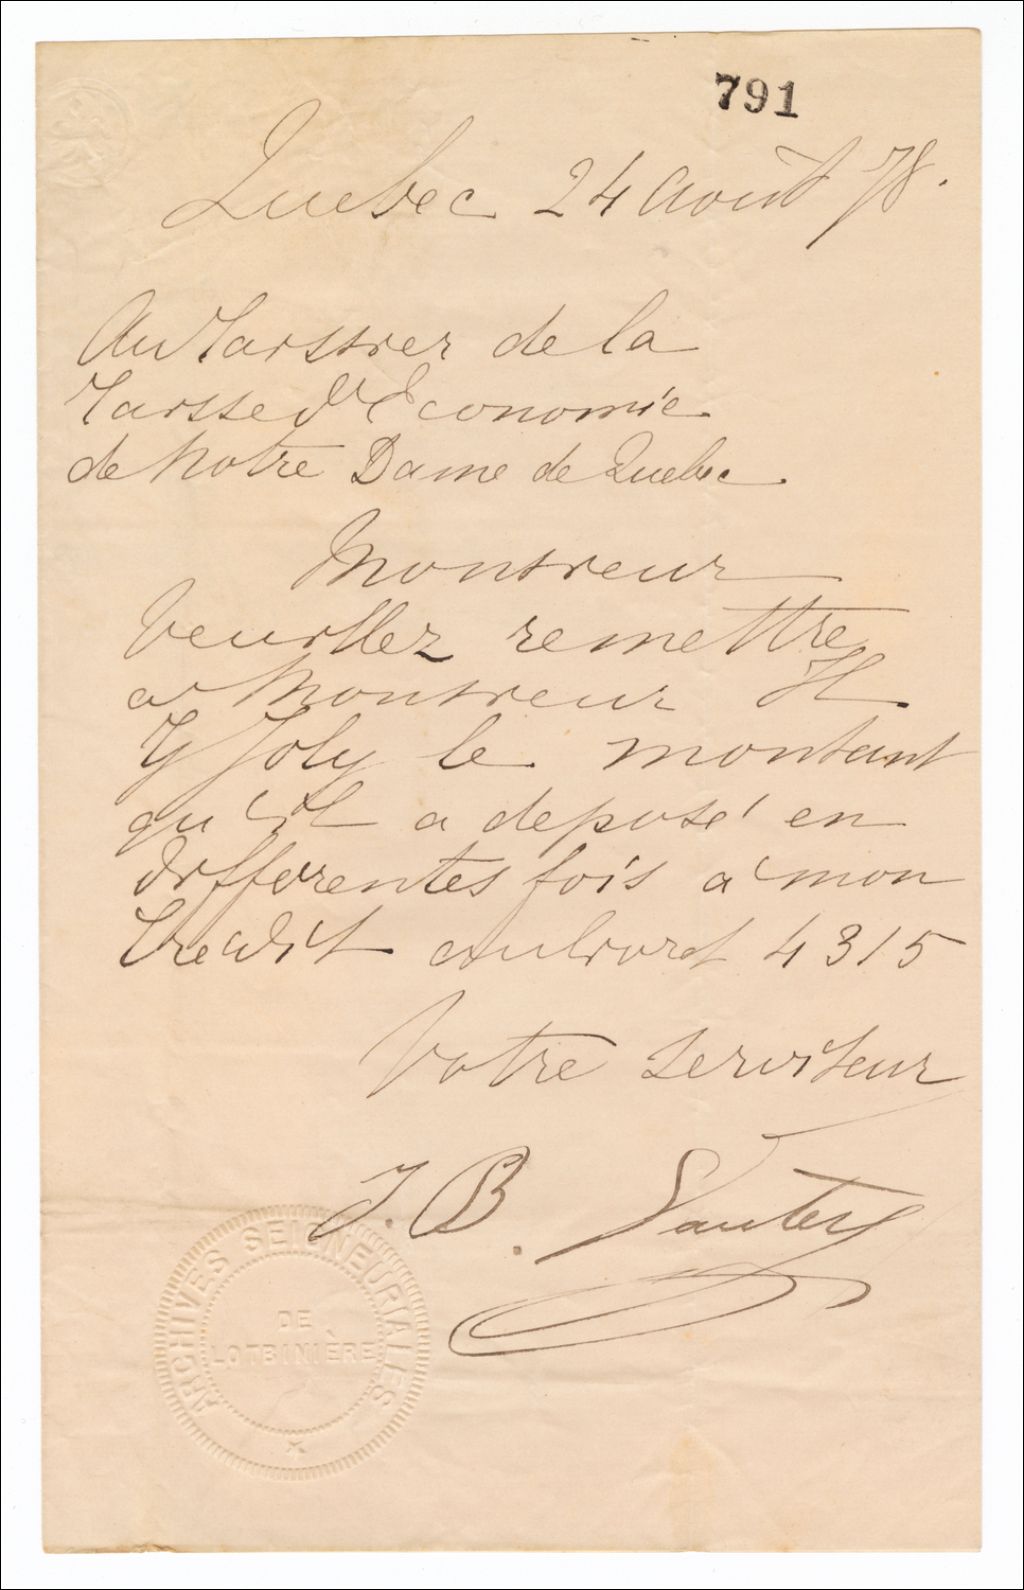 791
Quebec 24 août 78.
Au Caissier de la
Caisse d'Economie
de Notre Dame de Quebec.
Monsieur
Veuillez remettre
a Monsieur H
G Joly le montant
qu'il a deposé en
differentes fois a mon
Credit au livret 4315
Votre serviteur
J. B.
ARCHIVES SEIGNEURIALES
DE
LOTBINIÈRE